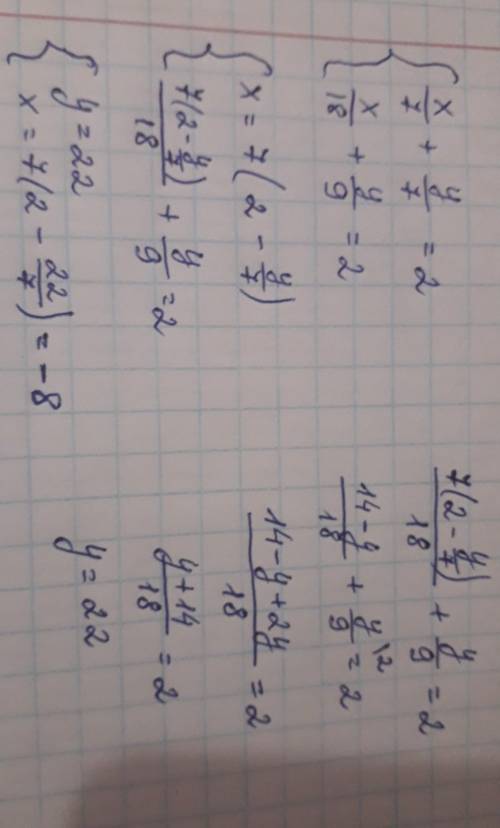 { x/7 + y/7 = 2
x/18 + y/9 = 2
{ x = 7(2 - y/7)
7(2 - y/7)/18 + y/9 = 2
{ y = 22
x = 7(2 - 22/7) = -8
7(2 - y/7)/18 + y/9 = 2
14-y/18 + y/9 \2 = 2
14-y+2y/18 = 2
y+14/18 = 2
y = 22